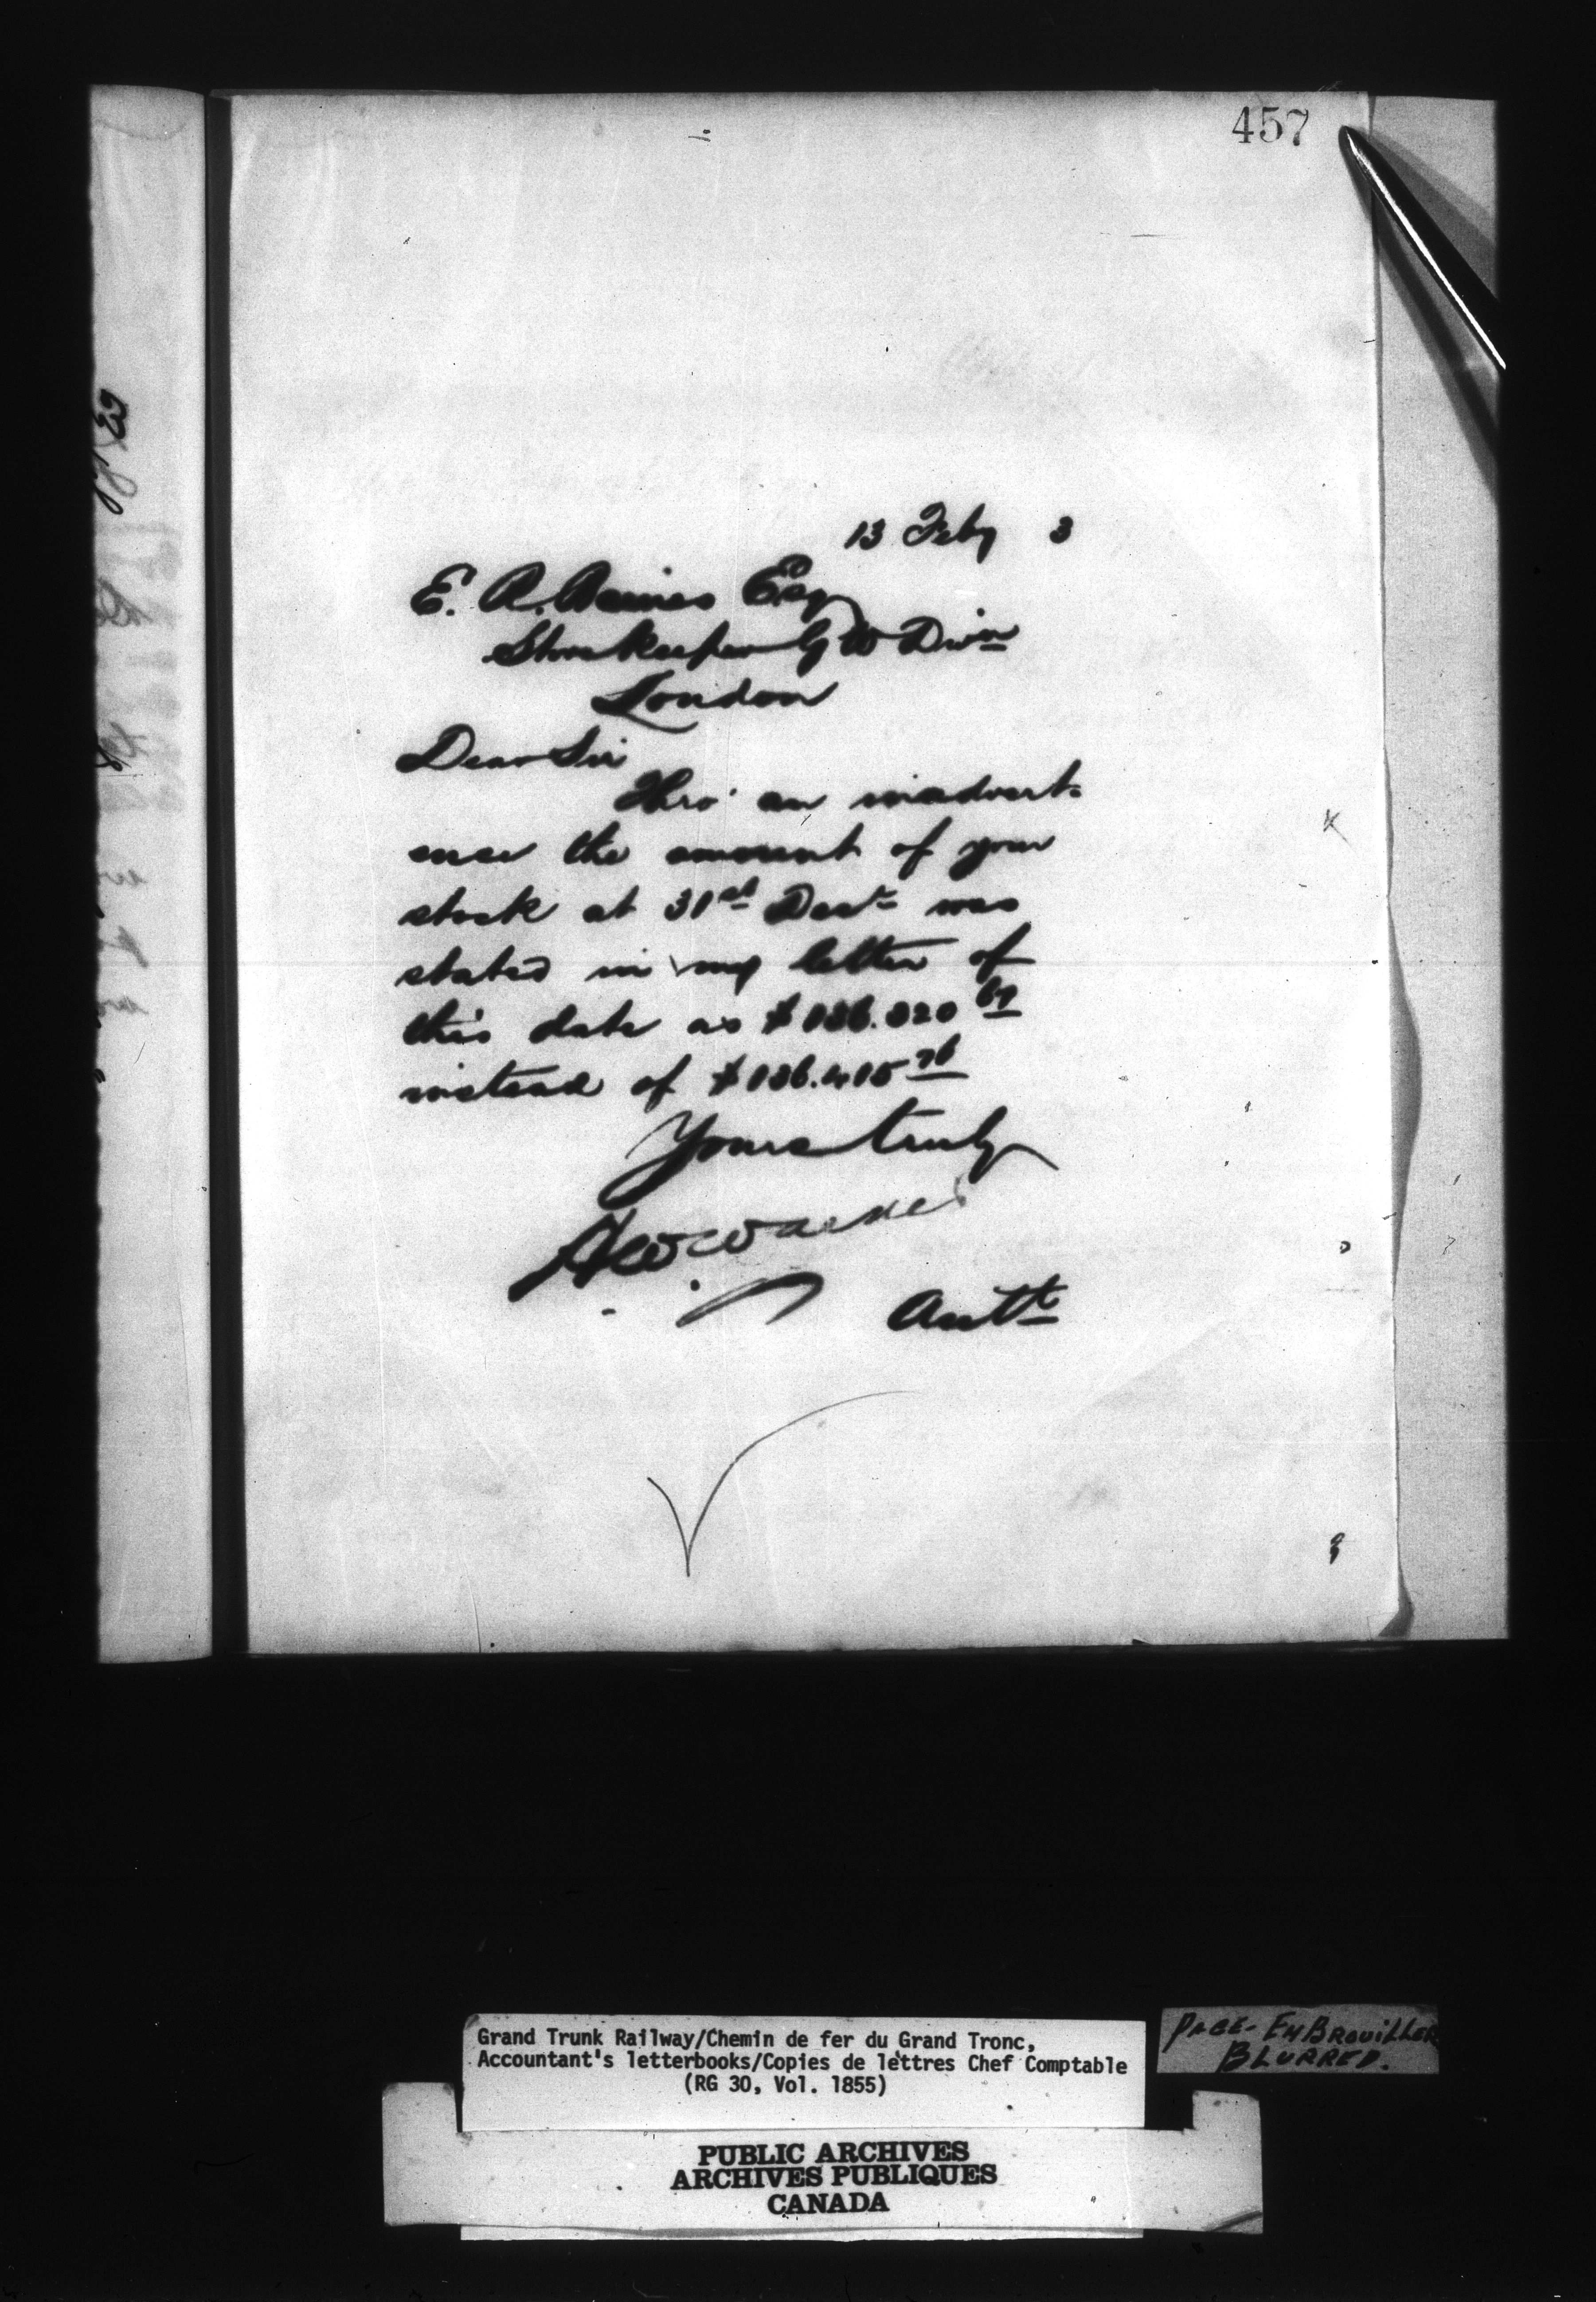 457
13 Feby 3
E. A. Baines Esq
Storekeeper G W Divn
London
Dear Sir
Thro' an inadvert-
ence the amount of your
stock at 31st Decr was
stated in my letter of
this date as $136.320 67
instead of $136.415 76
Yours truly
Actt
Grand Trunk Railway/Chemin de fer du Grand Tronc,
Accountant's letterbooks/Copies de lettres Chef Comptable
(RG 30, Vol. 1855)
PAGE - EMBROUILLER
BLURRED.
PUBLIC ARCHIVES
ARCHIVES PUBLIQUES
CANADA